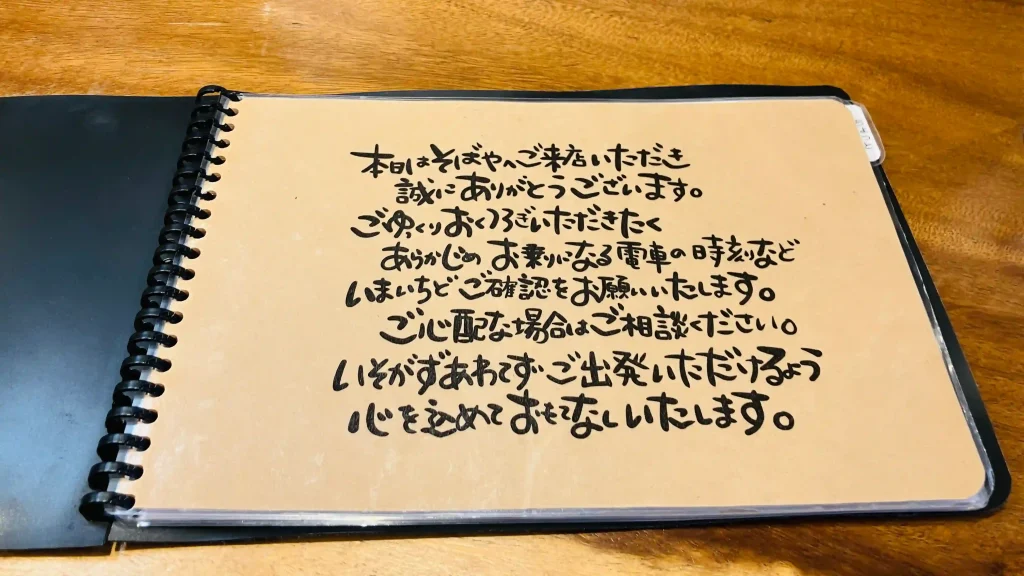 本日はそばやへご来店いただき
誠にありがとうございます。
ごゆっくりおくつろぎいただきたく
あらかじめ お乗りになる電車の時刻など
いまいちど ご確認をお願いいたします。
ご心配な場合はご相談ください。
いそがずあわてず ご出発いただけるよう
心を込めておもてなしいたします。